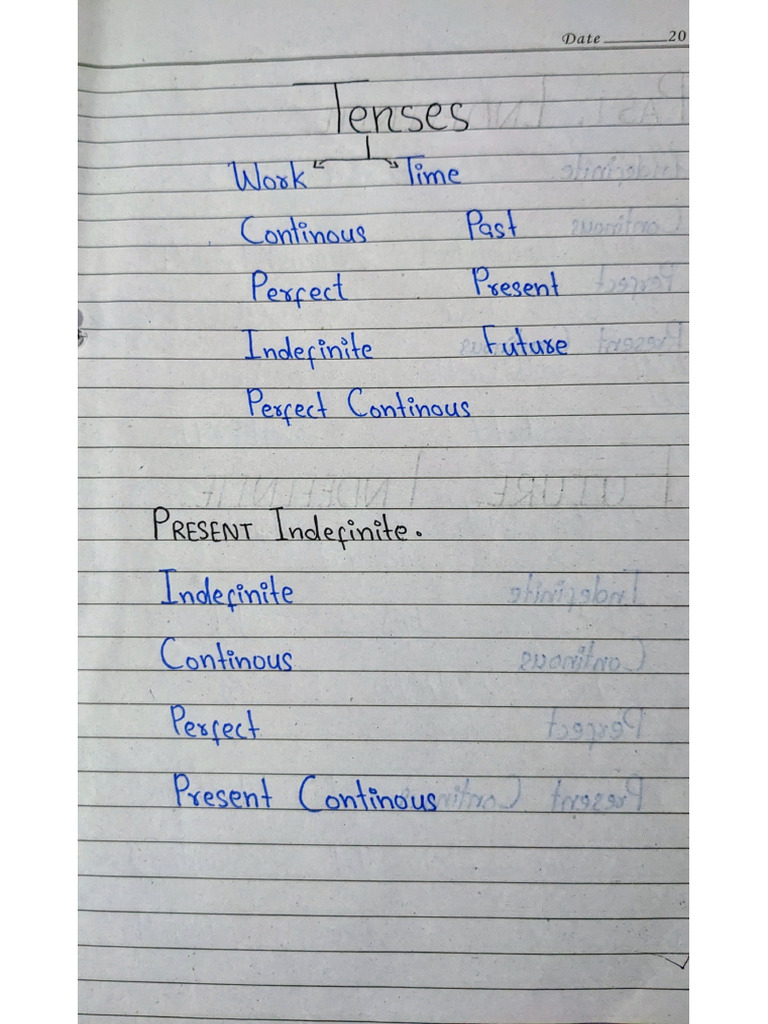 Date ______ 20
Tenses
Work Time
Continous Past
Perfect Present
Indefinite Future
Perfect Continous
PRESENT Indefinite.
Indefinite
Continous
Perfect
Present Continous